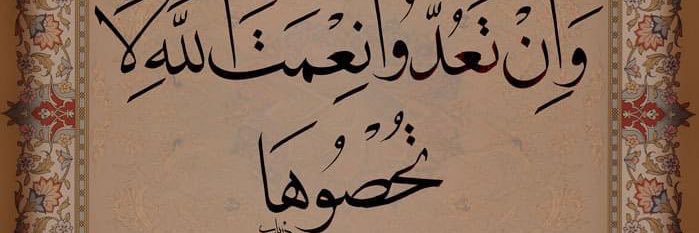 وَإِنْ تَعُدُّوا نِعْمَتَ اللّٰهِ لَا
تُحْصُوهَا